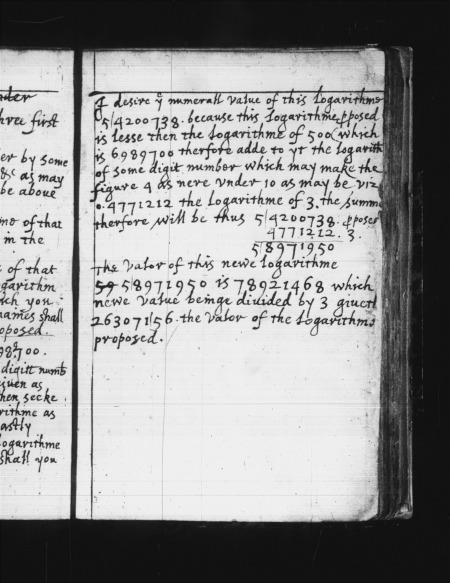 nder
hree first
er by some
&c as may
be aboue
me of that
in the
of that
garithm
ch you
names shall
oposed.
98700.
digitt numb
giuen as
hen secke
rithme as
astly
ogarithme
shall you
I desire yͤ numerall valor of this Logarithme
5|4200738. because this Logarithme pposed
is lesse then the Logarithme of 500 which
is 6989700 therfore adde to yt the Logarith
of some digit number which may make the
figure 4 as nere vnder 10 as may be viz
0.4771212 the Logarithme of 3. the summe
therfore will be thus 5|4200738. pposed
4771212. 3.
5|8971950
The valor of this newe Logarithme
59 5|8971950 is 78921468 which
newe value beinge divided by 3 giueth
263071|56. the valor of the Logarithme
proposed.